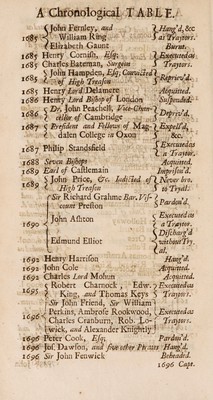 A Chronological TABLE.
John Fernley, and Hang'd, &c
1685 William Ring as Traytors.
Elizabeth Gaunt Burnt.
1685 Henry Cornish, Esq; Executed as
1685 Charles Bateman, Surgeon Traytors.
1685 John Hampden, Esq; Convicted Repriev'd.
of High Treason
1685 Henry Lord Delamere Acquitted.
1686 Henry Lord Bishop of London Suspended.
1687 Dr. John Peachell, Vice-Chan- Depriv'd.
cellor of Cambridge
1687 President and Fellows of Mag- Expell'd,
dalen College in Oxon &c.
1687 Philip Standsfield Executed as
a Traytor.
1688 Seven Bishops Acquitted.
1689 Earl of Castlemain Imprison'd.
1689 John Price, &c. Indicted of Never bro.
High Treason to Tryal.
Sir Richard Grahme Bar. Vis- Pardon'd.
count Preston
1690 John Ashton Executed as
a Traytor.
Edmund Elliot Discharg'd
without Try.
al.
1692 Henry Harrison Hang'd.
1692 John Cole Acquitted.
1692 Charles Lord Mohun Acquitted.
1695 Robert Charnock, Edw. Executed as
King, and Thomas Keys Traytors.
Sir John Friend, Sir William
1696 Perkins, Ambrose Rookwood, Executed as
Charles Cranburn, Rob. Lo- Traytors.
wick, and Alexander Knightly
1696 Peter Cook, Esq; Pardon'd.
1696 Jos. Dawson, and five other Pirates Hang'd.
1696 Sir John Fenwick Beheaded.
1696 Capt.